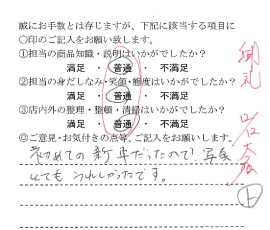 誠にお手数とは存じますが、下記に該当する項目に
〇印のご記入をお願い致します。
①担当の商品知識・説明はいかがでしたか？
満足 ・ 普通 ・ 不満足
②担当の身だしなみ・笑顔・態度はいかがでしたか？
満足 ・ 普通 ・ 不満足
③店内外の整理・整頓・清掃はいかがでしたか？
満足 ・ 普通 ・ 不満足
◎ご意見・お気付きの点等、ご記入をお願いします。
初めての新車だったので! 写真
とてもうれしかったです。
御礼
上